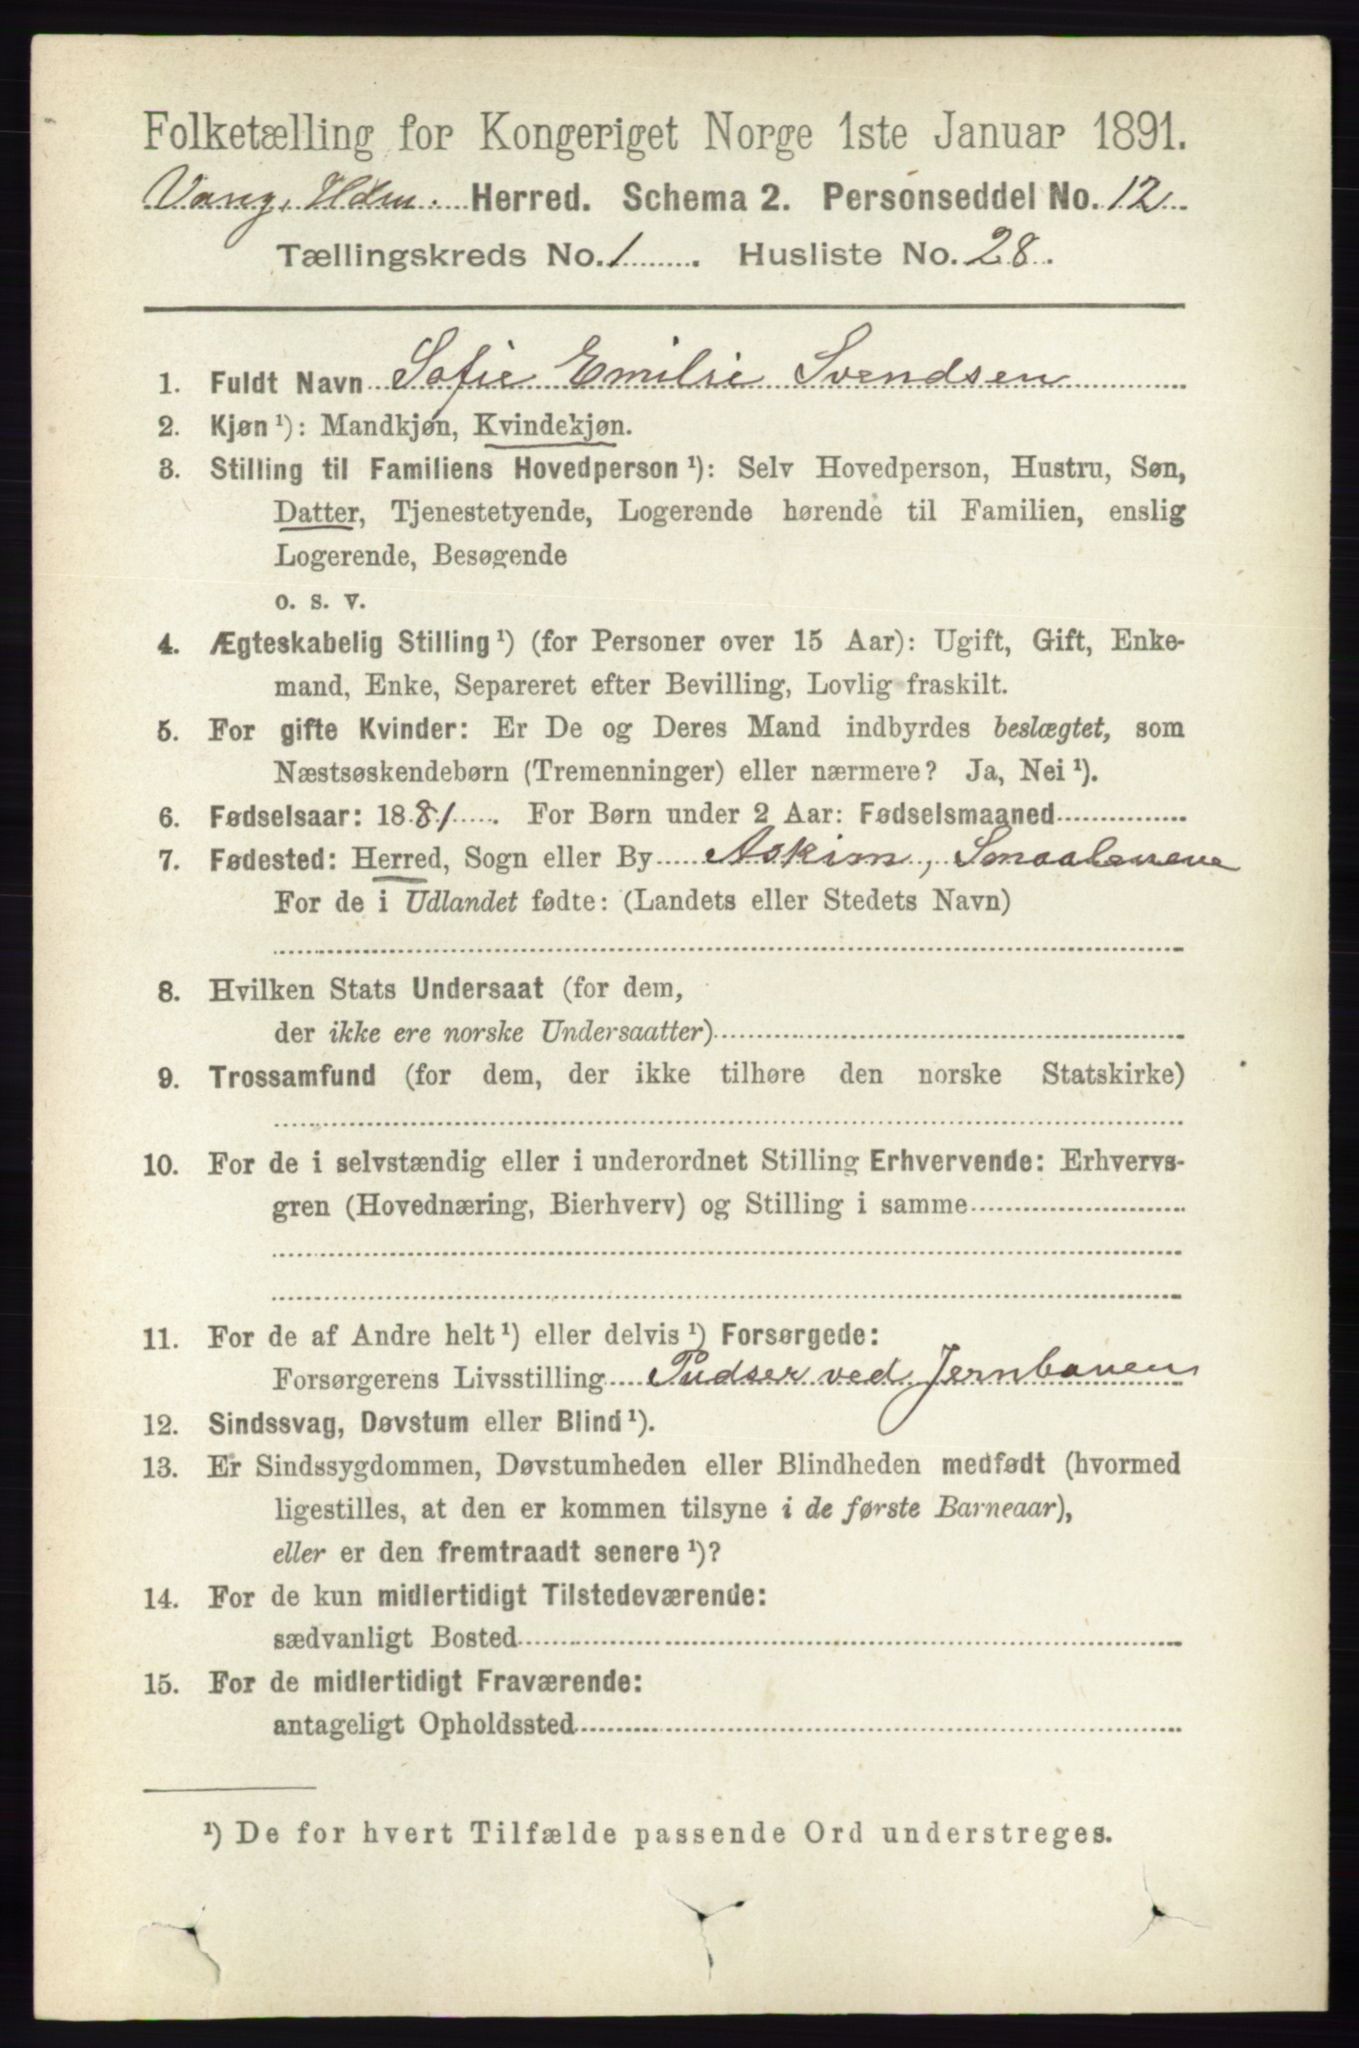 Folketælling for Kongeriget Norge 1ste Januar 1891.
Vang, Hdm. Herred. Schema 2. Personseddel No. 12
Tællingskreds No. 1. Husliste No. 28.
1. Fuldt Navn Sofie Emilie Svendsen
2. Kjøn ¹): Mandkjøn, Kvindekjøn.
3. Stilling til Familiens Hovedperson ¹): Selv Hovedperson, Hustru, Søn,
Datter, Tjenestetyende, Logerende hørende til Familien, enslig
Logerende, Besøgende
o. s. v.
4. Ægteskabelig Stilling ¹) (for Personer over 15 Aar): Ugift, Gift, Enke-
mand, Enke, Separeret efter Bevilling, Lovlig fraskilt.
5. For gifte Kvinder: Er De og Deres Mand indbyrdes beslægtet, som
Næstsøskendebørn (Tremenninger) eller nærmere? Ja, Nei ¹).
6. Fødselsaar: 1881. For Børn under 2 Aar: Fødselsmaaned
7. Fødested: Herred, Sogn eller By Askim, Smaalenene
For de i Udlandet fødte: (Landets eller Stedets Navn)
8. Hvilken Stats Undersaat (for dem,
der ikke ere norske Undersaatter)
9. Trossamfund (for dem, der ikke tilhøre den norske Statskirke)
10. For de i selvstændig eller i underordnet Stilling Erhvervende: Erhvervs-
gren (Hovednæring, Bierhverv) og Stilling i samme
11. For de af Andre helt ¹) eller delvis ¹) Forsørgede:
Forsørgerens Livsstilling Pudser ved Jernbanen
12. Sindssvag, Døvstum eller Blind ¹).
13. Er Sindssygdommen, Døvstumheden eller Blindheden medfødt (hvormed
ligestilles, at den er kommen tilsyne i de første Barneaar),
eller er den fremtraadt senere ¹)?
14. For de kun midlertidigt Tilstedeværende:
sædvanligt Bosted
15. For de midlertidigt Fraværende:
antageligt Opholdssted
¹) De for hvert Tilfælde passende Ord understreges.